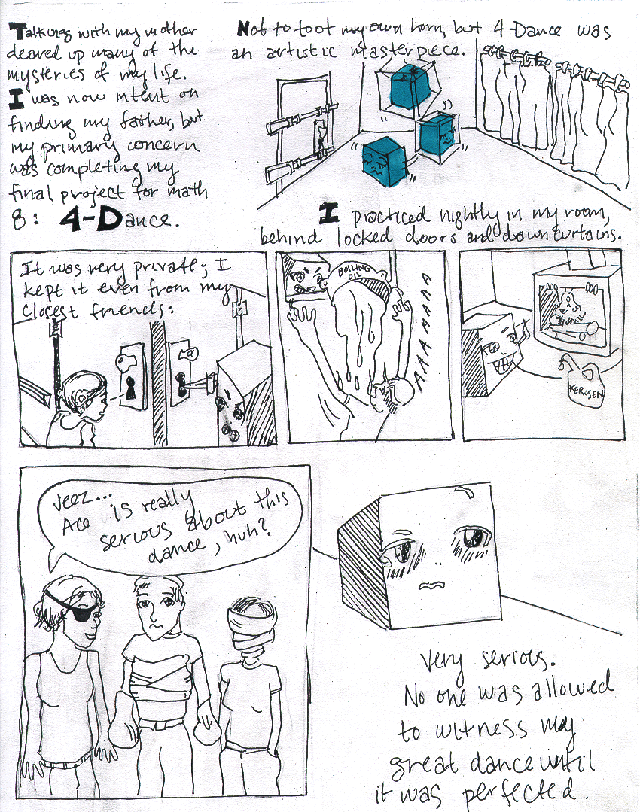 Talking with my mother
cleared up many of the
mysteries of my life.
I was now intent on
finding my father, but
my primary concern
was completing my
final project for math
8: 4-Dance.
Not to toot my own horn, but 4-Dance was
an artistic masterpiece.
I practiced nightly in my room,
behind locked doors and down curtains.
It was very private; I
kept it even from my
closest friends:
BOILING
OIL
AAAAAAAA
KEROSEN
Jeez...
Ace is really
serious about this
dance, huh?
Very serious.
No one was allowed
to witness my
great dance until
it was perfected.